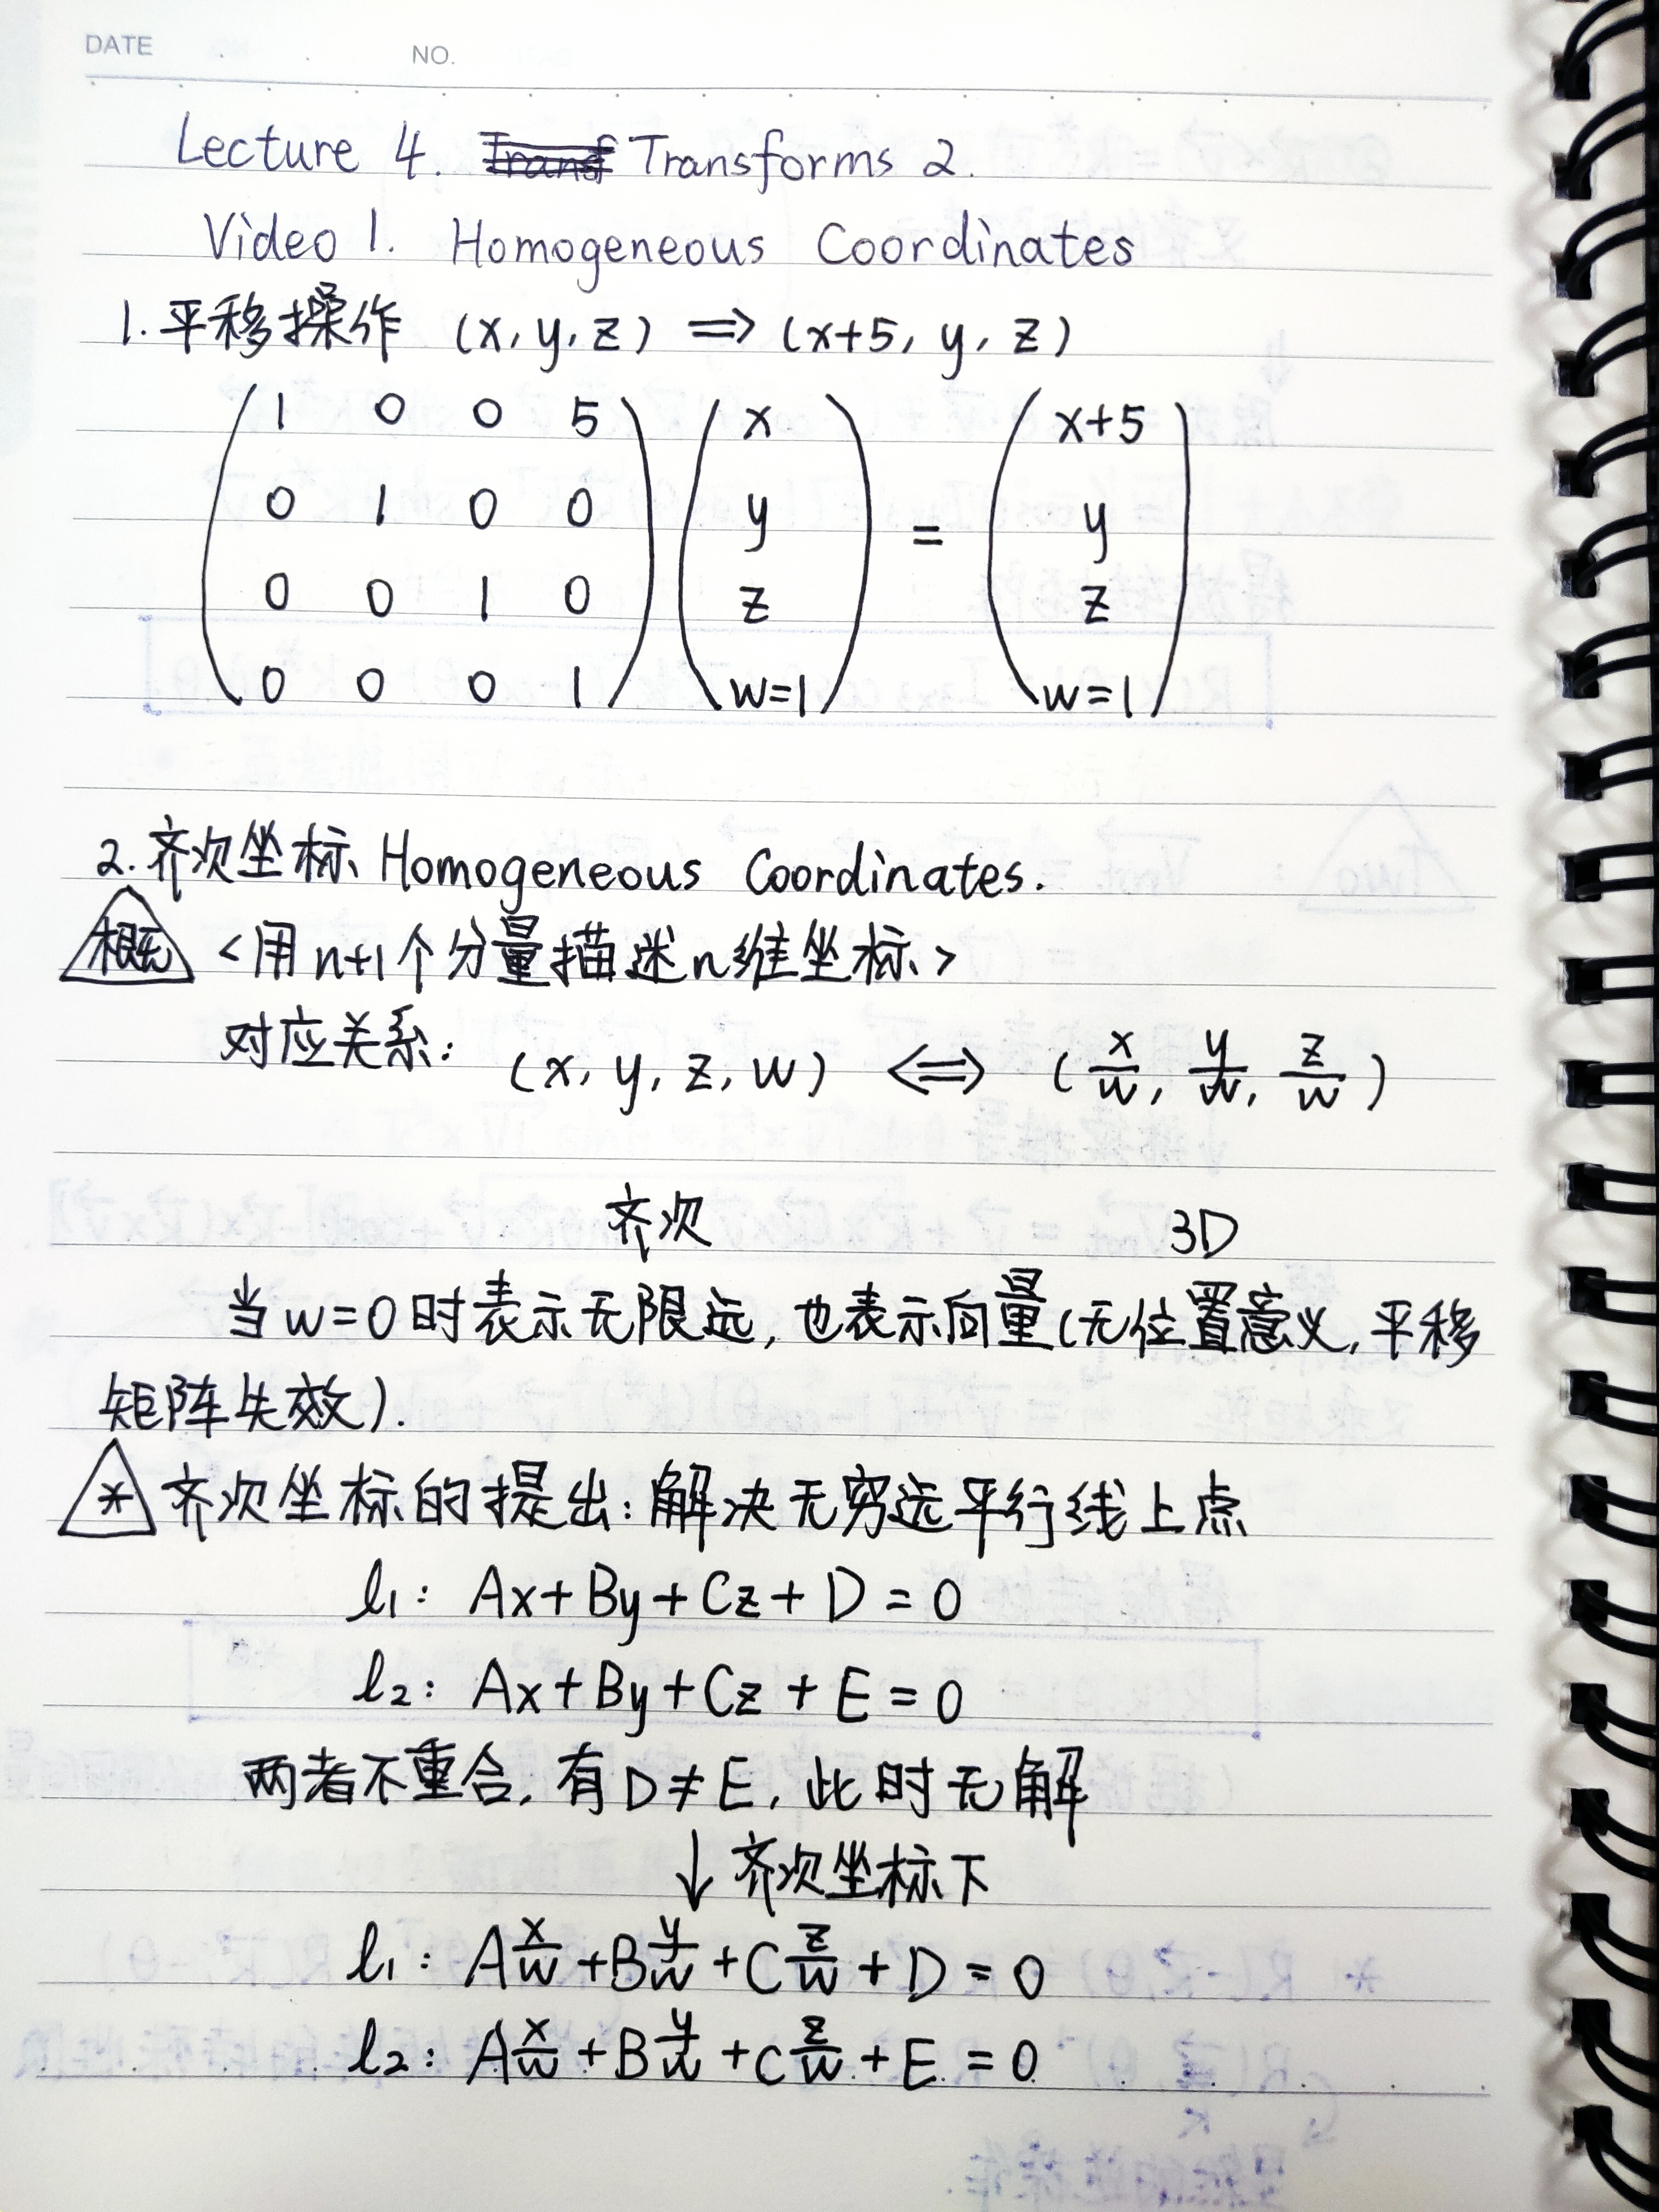 DATE . . NO.
Lecture 4. Transforms 2.
Video 1. Homogeneous Coordinates
1. 平移操作 (x, y, z) ⇒ (x+5, y, z)
( 1 0 0 5 ) ( x ) ( x+5 )
0 1 0 0 y = y
0 0 1 0 z z
0 0 0 1 w=1 w=1
2. 齐次坐标 Homogeneous Coordinates.
概无 <用n+1个分量描述n维坐标>
对应关系: (x, y, z, w) ⟺ (x/w, y/w, z/w)
齐次 3D
当w=0时表示无限远, 也表示向量(无位置意义, 平移
矩阵失效).
* 齐次坐标的提出: 解决无穷远平行线上点
l₁: Ax+By+Cz+D=0
l₂: Ax+By+Cz+E=0
两者不重合, 有D≠E, 此时无解
↓ 齐次坐标下
l₁: A x/w + B y/w + C z/w + D = 0
l₂: A x/w + B y/w + C z/w + E = 0